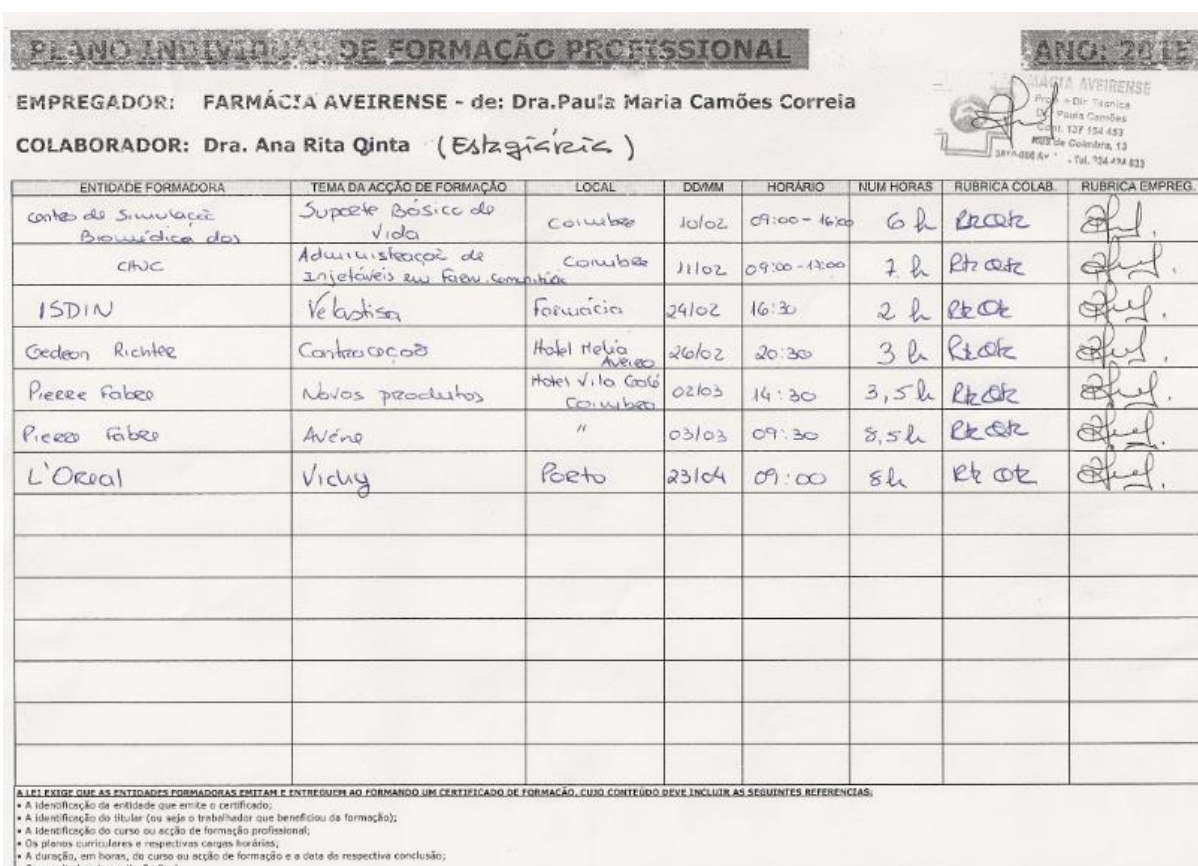 PLANO INDIVIDUAL DE FORMAÇÃO PROFISSIONAL ANO: 2015
EMPREGADOR: FARMÁCIA AVEIRENSE - de: Dra.Paula Maria Camões Correia
COLABORADOR: Dra. Ana Rita Qinta (Estagiária)
AVEIRENSE
Dir Técnica
Paula Camões
137 154 453
Rua de Coimbra, 13
ENTIDADE FORMADORA TEMA DA ACÇÃO DE FORMAÇÃO LOCAL DD/MM HORÁRIO NUM HORAS RUBRICA COLAB. RUBRICA EMPREG.
Centro de Simulação Biomédica dos Suporte Básico de Vida Coimbra 10/02 09:00 - 16:00 6 h
CHUC Administração de Injetáveis em Farm. Comunitária Coimbra 11/02 09:00 - 17:00 7 h
ISDIN Velastisa Farmácia 24/02 16:30 2 h
Gedeon Richter Contraceção Hotel Melia Aveiro 26/02 20:30 3 h
Pierre Fabre Novos produtos Hotel Vila Galé Coimbra 02/03 14:30 3,5 h
Pierre Fabre Avéne " 03/03 09:30 8,5 h
L'Oreal Vichy Porto 23/04 09:00 8h
A LEI EXIGE QUE AS ENTIDADES FORMADORAS EMITAM E ENTREGUEM AO FORMANDO UM CERTIFICADO DE FORMAÇÃO, CUJO CONTEÚDO DEVE INCLUIR AS SEGUINTES REFERENCIAS:
• A identificação da entidade que emite o certificado;
• A identificação do titular (ou seja o trabalhador que beneficiou da formação);
• A identificação do curso ou acção de formação profissional;
• Os planos curriculares e respectivas cargas horárias;
• A duração, em horas, do curso ou acção de formação e a data da respectiva conclusão;